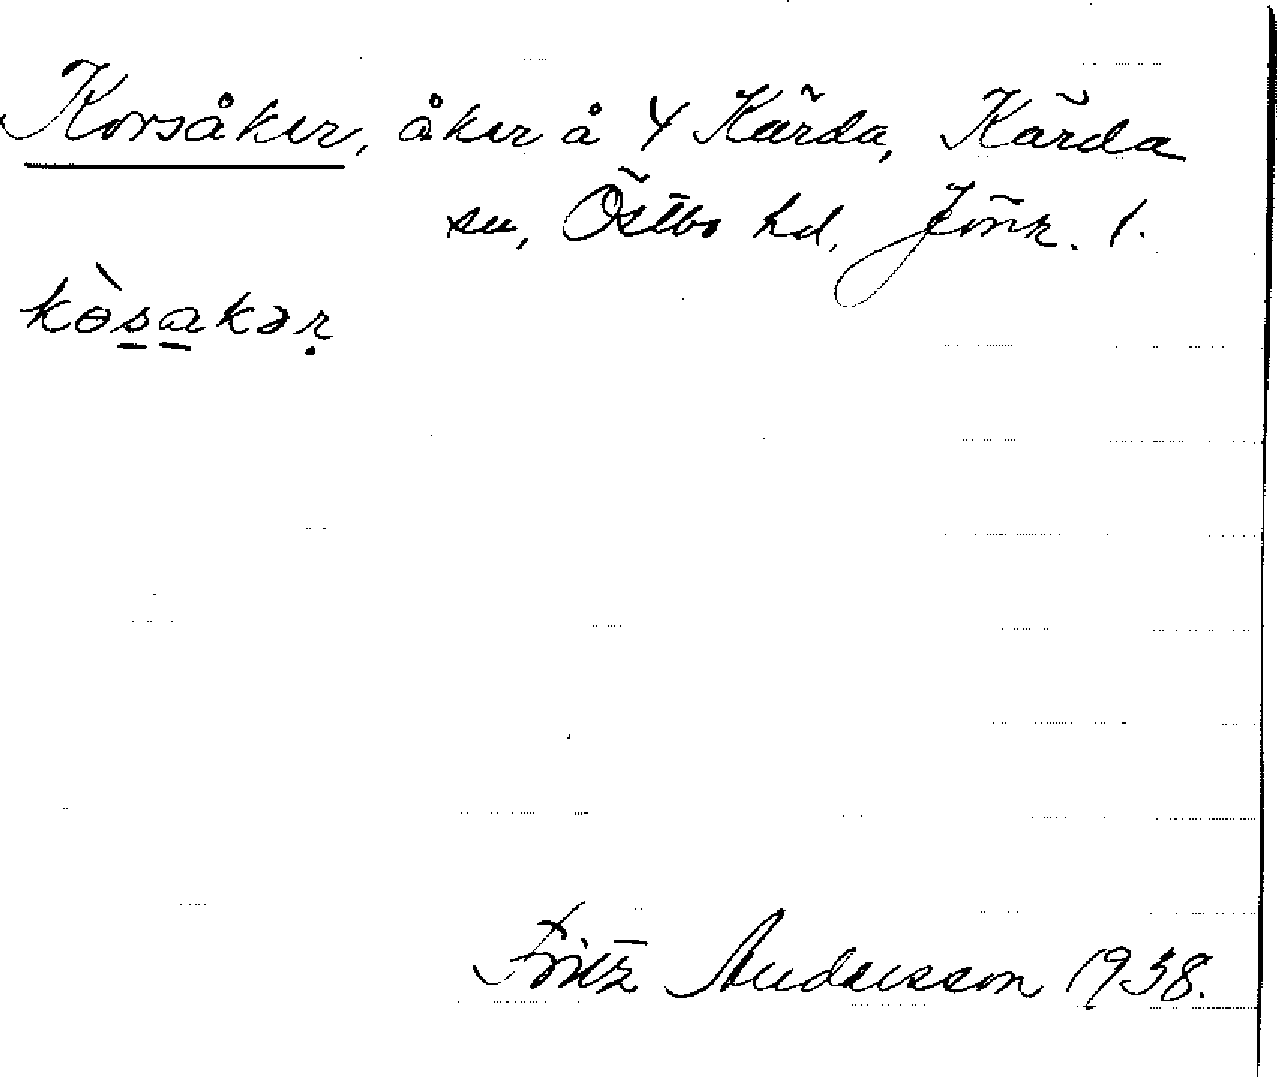 Korsåker, åker å 4 Kärda, Kärda
sn, Östbo hd, Jönk. l.
kɵ̀sakər
Fritz Andersson 1938.